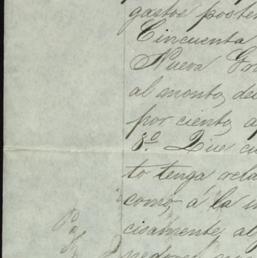 gastos poster
Cincuenta
Nueva Yor
al monto, de
por ciento, a
3º. Que cu
to tenga
como, á la
cisamente, al